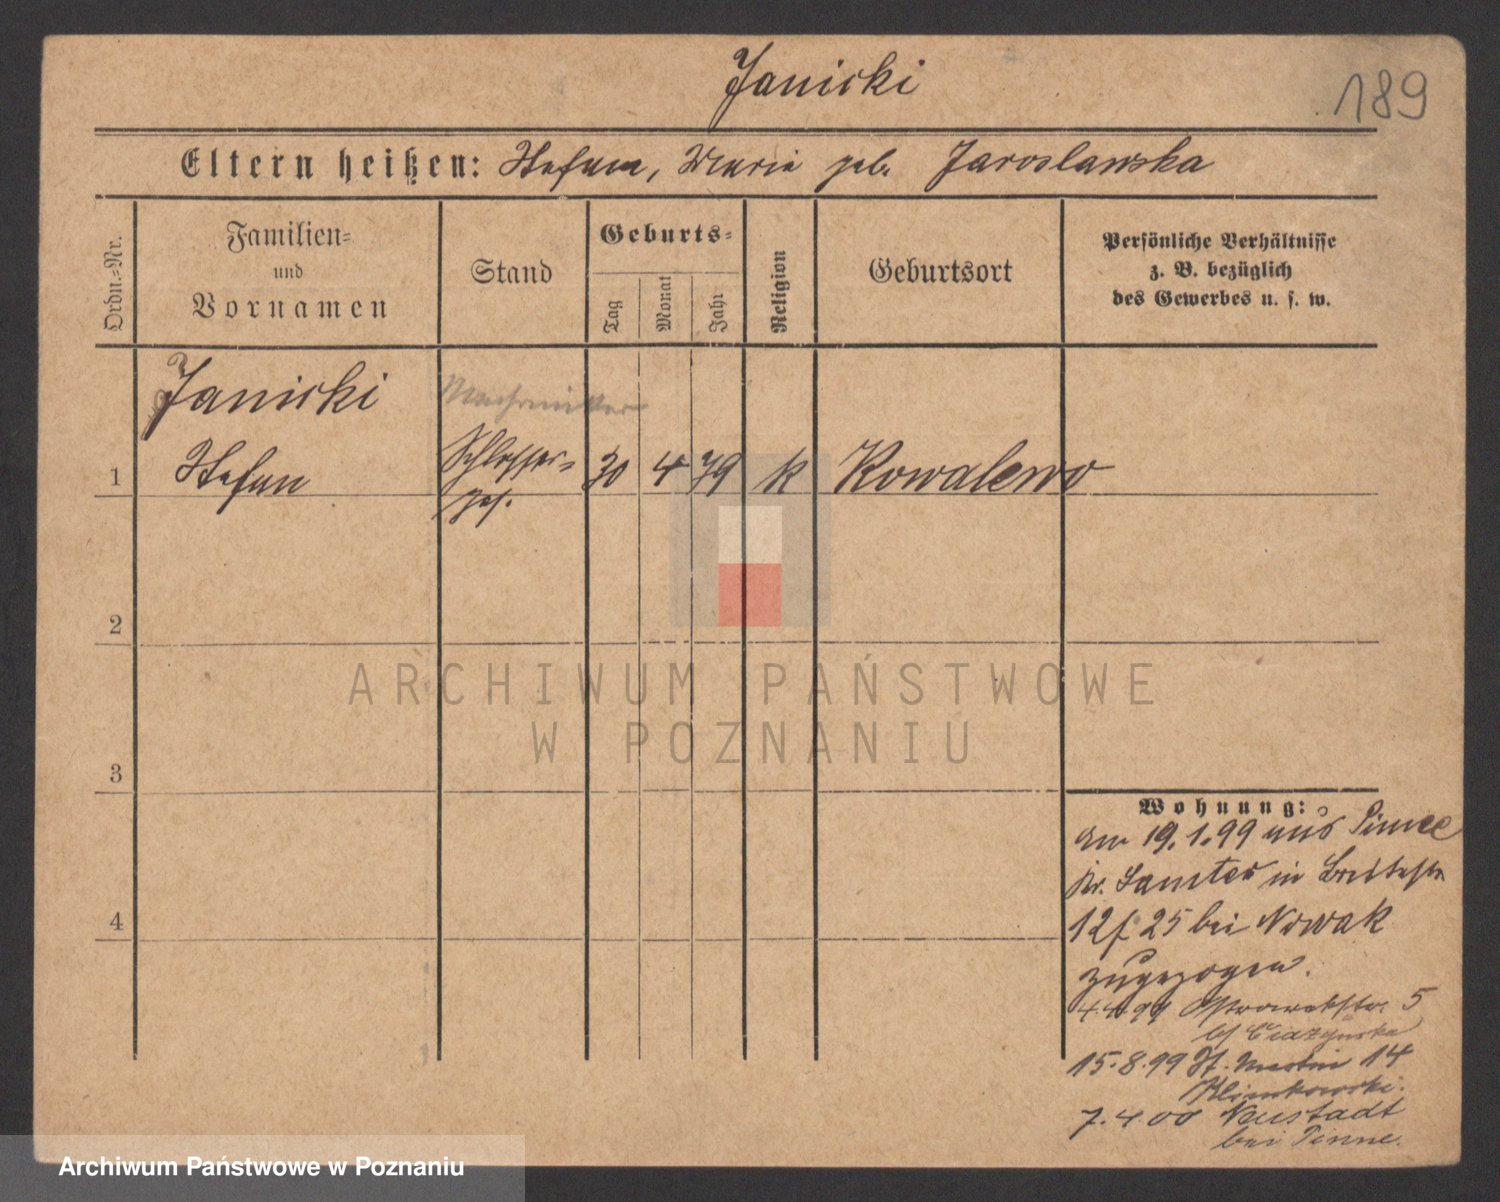 Janicki
189
Eltern heißen: Stefan, Marie geb. Jaroslawska
Ordn.-Nr.
Familien-
und
Vornamen
Stand
Geburts-
Tag
Monat
Jahr
Religion
Geburtsort
Persönliche Verhältnisse
z. B. bezüglich
des Gewerbes u. s. w.
Janicki
1 Stefan Schlosser- 30 4 79 k Kowalewo
ges.
2
3
4
Wohnung:
am 19.1.99 aus Pinne
Kr. Samter in Breitestr
12 25 bei Nowak
zugezogen.
4.4.99 Ostrowekstr. 5
15.8.99 St. Martin 14
Klimkowski.
7.4.00 Neustadt
bei Pinne.
ARCHIWUM PAŃSTWOWE
W POZNANIU
Archiwum Państwowe w Poznaniu